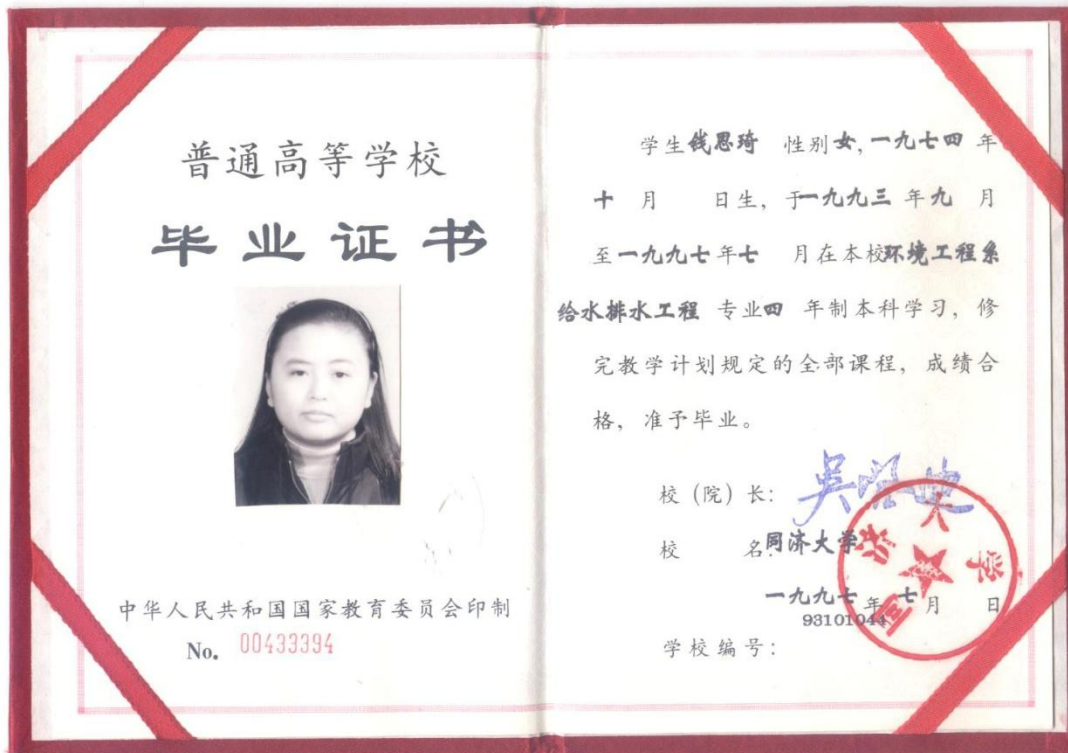 普通高等学校
毕业证书
中华人民共和国国家教育委员会印制
No. 00433394
学生钱思琦 性别女,一九七四 年
十 月 日生, 于一九九三 年九 月
至一九九七年七 月在本校环境工程系
给水排水工程 专业四 年制本科学习, 修
完教学计划规定的全部课程, 成绩合
格, 准予毕业。
校 (院) 长:
校 名:同济大学
一九九七 年 七 月 日
93101044
学校编号:
同济大学